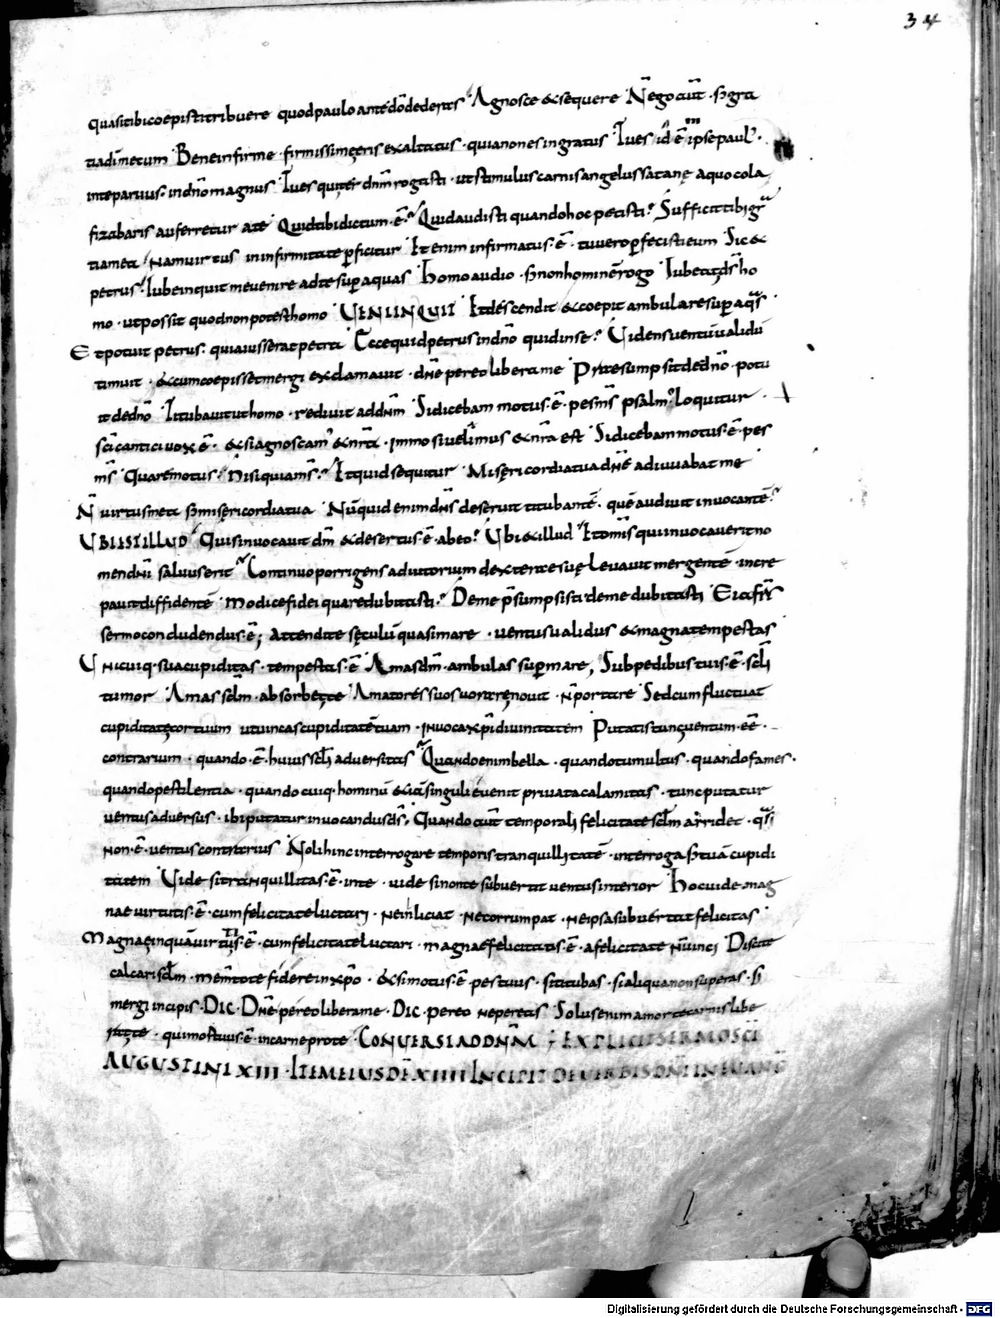 34
quasi tibi coepisti tribuere quod paulo ante dō dederas Agnosce & sequere N̄ ego aūt s; gra
tia dī mecum Bene infirme firmissimę eris exaltatus quia non es ingratus Tu es id ē ipse paul'
in te paruus in dnō magnus Tu es qui ter dnm̄ rogasti ut stimulus carnis angelus satanę a quo cola
fizabaris auferretur a te Quid tibi dictum ē Quid audisti quando hoc petisti Sufficit tibi gra
tia mea Nam uirtus in infirmitate perficitur Et enim infirmatus ē tu uero perfecisti eum Sic &
petrus Iube inquit me uenire ad te super aquas Homo audio s; non hominē rogo Iubeat ds̄ ho
mo ut possit quod non potest homo UENI INQUIT Et descendit & coepit ambulare super aquas
Et potuit petrus quia iusserat petra Ecce quid petrus in dnō quid in se Uidens uentū ualidū
timuit & cum coepisset mergi exclamauit dnē pereo libera me Praesumpsit de dnō potu
it de dnō Titubauit ut homo rediuit ad dnm̄ Si dicebam motus ē pes ms̄ psalm' loquitur
sc̄i cantici uox ē & si agnoscam' & nr̄a immo si uelimus & nr̄a est Si dicebam motus ē pes
ms̄ Quare motus Nisi quia ms̄ Et quid sequitur Misericordia tua dnē adiuuabat me
N̄ uirtus mea s; misericordia tua Nūquid enim dns̄ deseruit titubantē quē audiuit inuocantē
UBI EST ILLUD Quis inuocauit dm̄ & desertus ē ab eo Ubi & illud Et omīs qui inuocauerit no
men dnī saluus erit Continuo porrigens adiutorium dexterae suę leuauit mergentē incre
pauit diffidentē modice fidei quare dubitasti De me presumpsisti de me dubitasti Eia frr̄
sermo concludendus ē; Attendite sęculū quasi mare uentus ualidus & magna tempestas
Unicuiq; sua cupiditas tempestas ē Amas dm̄ ambulas super mare, Sub pedibus tuis ē scl̄i
tumor Amas sclm̄ absorbet te Amatores suos uorare nouit n̄ portare Sed cum fluctuat
cupiditate cor tuum ut uincas cupiditatē tuam inuoca xpī diuinitatem Putatis tunc uentum eē
contrarium quando ē huius scl̄i aduersitas Quando enim bella quando tumultus quando fames
quando pestilentia quando cuiq; hominū etiā singuli euenit priuata calamitas tunc putatur
uentus aduersus ibi putatur inuocandus ds̄, Quando aūt temporali felicitate sclm̄ arridet quasi
non ē uentus contrarius Noli hinc interrogare temporis tranquillitatē interroga s; tuā cupidi
tatem Uide si tranquillitas ē in te uide si non te subuertit uentus interior Hoc uide mag
nae uirtutis ē cum felicitate luctari ne inliciat ne corrumpat ne ipsa subuertat felicitas
Magnae inquā uirtutis ē cum felicitate luctari magnae felicitatis ē a felicitate n̄ uinci Disce
calcare sclm̄ memtote fidere in xpō & si motus ē pes tuus si titubas si aliqua non superas si
mergi incipis DIC DNĒ pereo libera me DIC pereo ne pereas Solus enim a morte carnis libe
rat te qui mortuus ē in carne pro te CONUERSI AD DNM̄; EXPLICIT SERMO SC̄I
AUGUSTINI XIII ITEM EIUSDĒ XIIII INCIPIT DE UERBIS DNĪ IN EUANG
Digitalisierung gefördert durch die Deutsche Forschungsgemeinschaft DFG